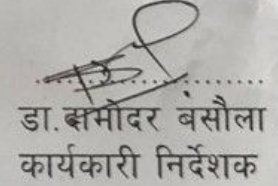 डा.दामोदर बसौला
कार्यकारी निर्देशक